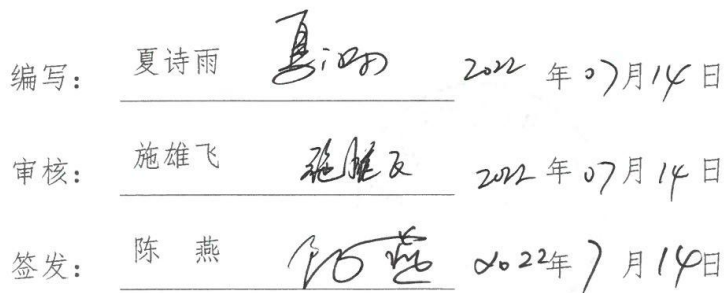 编写： 夏诗雨 夏诗雨 2022 年 07 月 14 日
审核： 施雄飞 施雄飞 2022 年 07 月 14 日
签发： 陈 燕 陈燕 2022 年 7 月 14 日